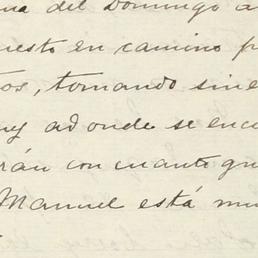 na del Domingo a
uesto en camino p
os, tomando sin
ey adonde se enc
rán con cuanto gu
Manuel está mu